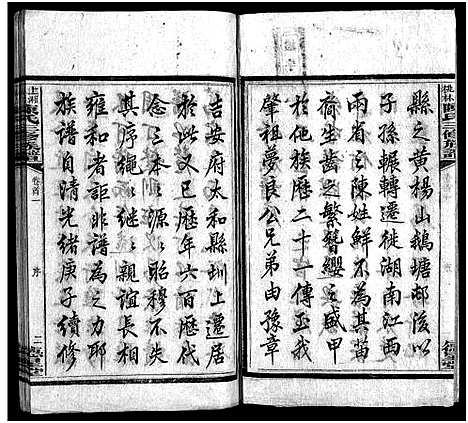 桃林陳氏三修族譜
縣之黃楊山鵝塘邨後以
子孫輾轉遷徙湖南江西
兩省之陳姓鮮不為其苗
裔生齒之繁簪纓之盛甲
於他族歷二十一傳至我
肇祖夢良公兄弟由豫章
吉安府太和縣圳上遷居
於此又已歷年六百歷代
念三本本源源昭穆不失
其序繩繩繼繼親誼長相
雍和非譜為之力耶
族譜自清光緒庚子續修
卷首一
序
二